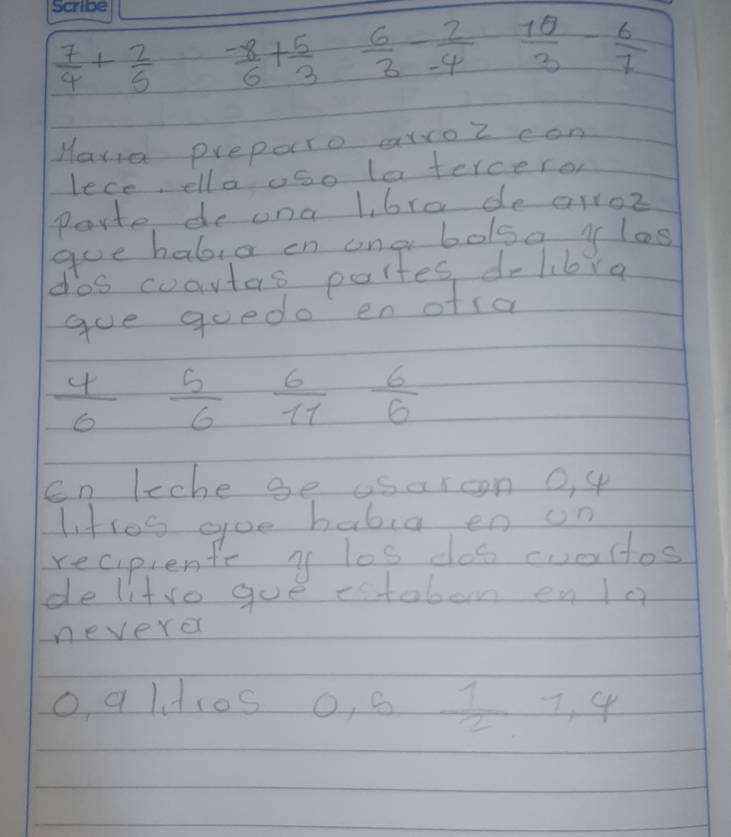 Scribe
7/4 + 2/5 -8/6 + 5/3 6/3 - 2/-4 10/3 - 6/7
Maria preparo arroz con
lece. ella uso la tercera
Parte de una libra de arroz
que habia en una bolsa y las
dos cuartas partes de libra
que quedo en otra
4/6 5/6 6/11 6/6
En leche se usaron 0,4
litros que habia en un
recipiente y los dos cuartos
de litro que estaban en la
nevera
0,9 litros 0,5 1/2 1,4